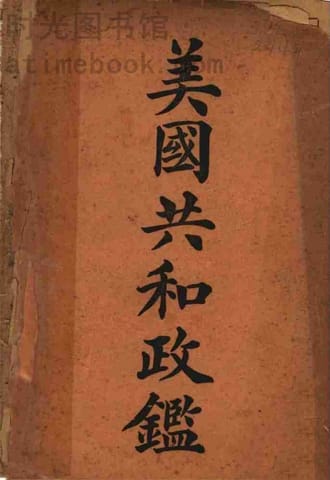 时光图书馆
atimebook.com
美國共和政鑑